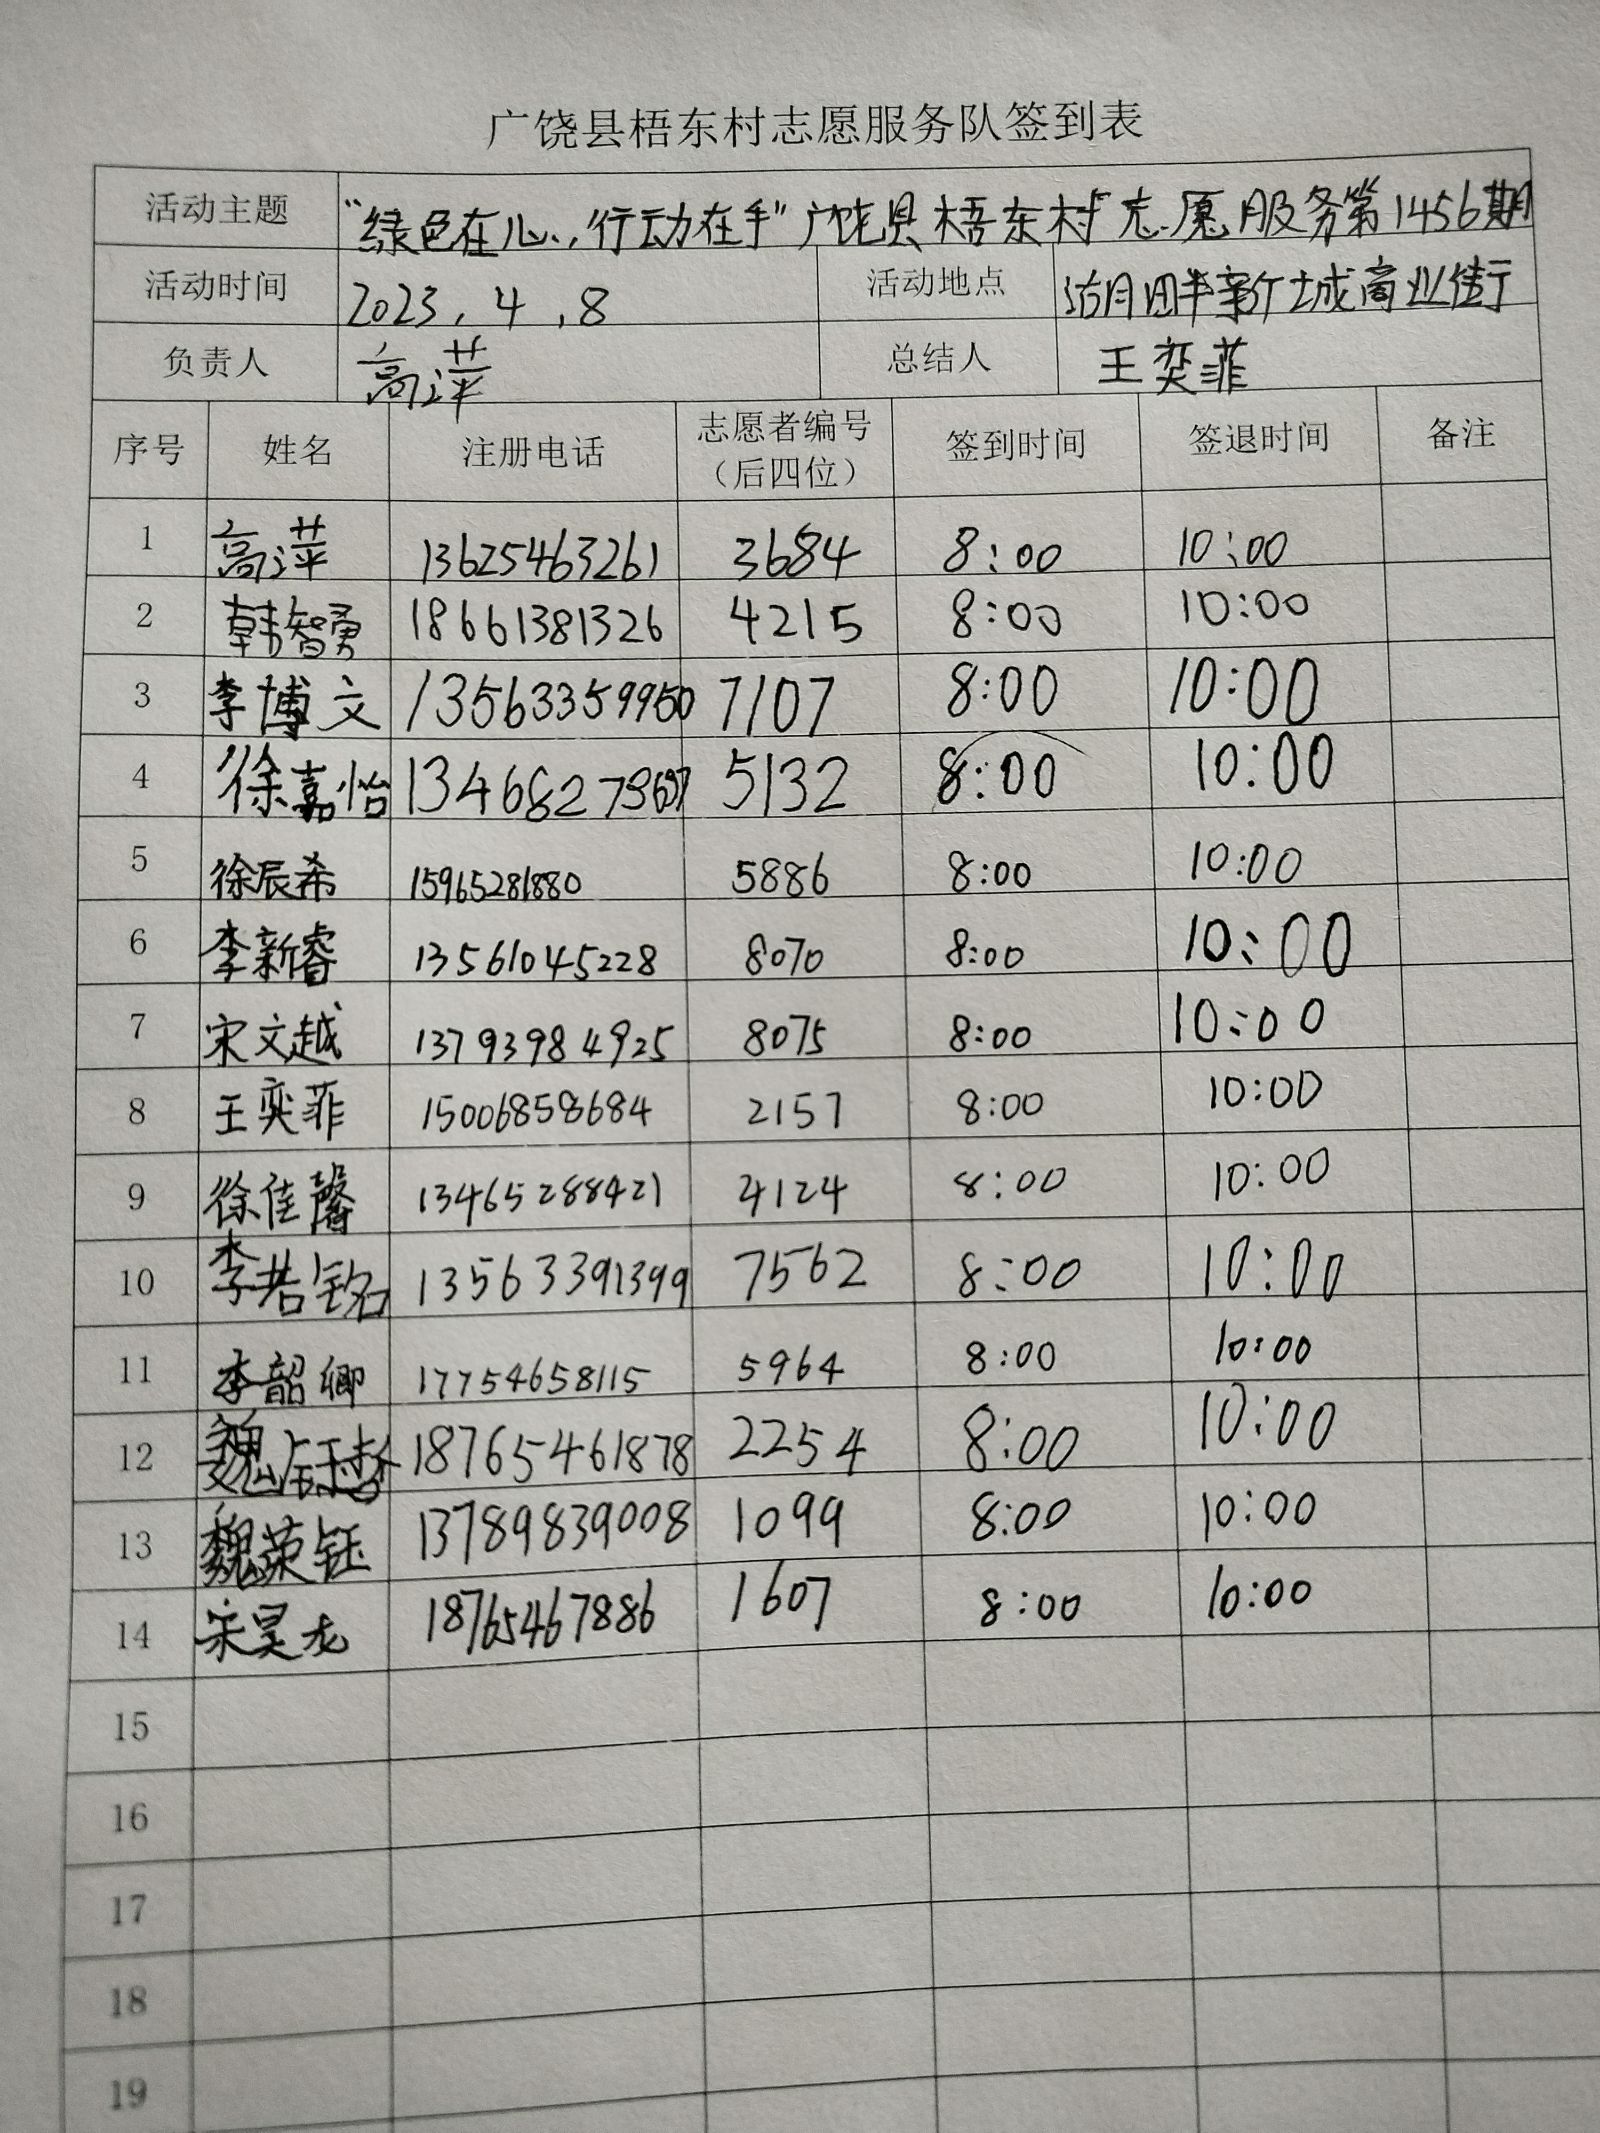 广饶县梧东村志愿服务队签到表
活动主题 “绿色在心,行动在手”广饶县梧东村志愿服务第1456期
活动时间 2023.4.8 活动地点 湖畔新城商业街
负责人 高萍 总结人 王奕菲
序号 姓名 注册电话 志愿者编号（后四位） 签到时间 签退时间 备注
1 高萍 13625463261 3684 8:00 10:00
2 韩智勇 18661381326 4215 8:00 10:00
3 李博文 13563359950 7107 8:00 10:00
4 徐嘉怡 5132 8:00 10:00
5 徐辰希 15965281880 5886 8:00 10:00
6 李新睿 13561045228 8070 8:00 10:00
7 宋文越 13793984925 8075 8:00 10:00
8 王奕菲 15006858684 2157 8:00 10:00
9 徐佳馨 13465288421 4124 8:00 10:00
10 李若铭 13563391399 7562 8:00 10:00
11 李韶卿 17754658115 5964 8:00 10:00
12 魏钰哲 18765461878 2254 8:00 10:00
13 魏荣钰 13789839008 1099 8:00 10:00
14 宋昊龙 18765467886 1607 8:00 10:00
15
16
17
18
19